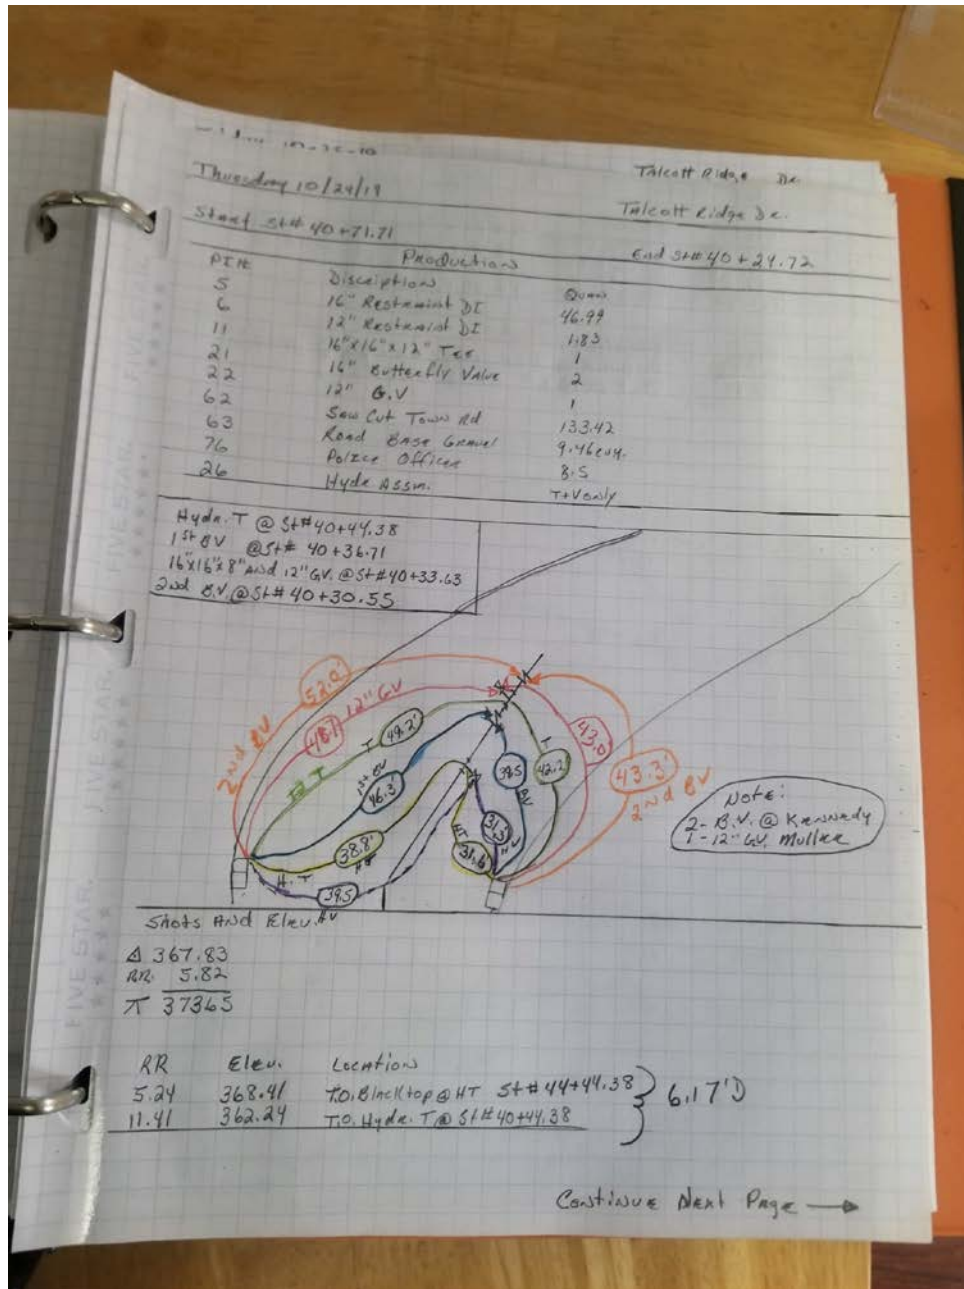 Talcott Ridge Dr.
Thursday 10/24/19
Talcott Ridge Dr.
Start St# 40+71.71
End St# 40+24.72
Production
PIT# Discription Quan
5 16" Restraint DI 46.99
6 12" Restraint DI 1.83
11 16"x16"x12" Tee 1
21 16" Butterfly Valve 2
22 12" G.V 1
62 Saw Cut Town Rd 133.42
63 Road Base Gravel 9.46
76 Police Officer 8.5
26 Hydr Assm. T+V only
Hydr. T @ St# 40+44.38
1st BV @ St# 40+36.71
16"x16"x8" And 12" GV. @ St# 40+33.63
2nd B.V. @ St# 40+30.55
2nd BV 52.0'
48.1 12" GV
T 49.2'
1st BV 46.3'
H.T 38.8'
39.5 HV
39.5 BV
T 42.2'
43.0
43.3' 2nd BV
HT 31.6
31.3 HV
Note:
2- B.V. @ Kennedy
1-12" GV. Muller
Shots And Elev.
Δ 367.83
RR. 5.82
⊼ 37365
RR Elev. Location
5.24 368.41 T.O. Blacktop @ HT St# 44+44.38
11.41 362.24 T.O. Hydr. T @ St# 40+44.38
6.17'D
Continue Next Page →
FIVE STAR.
FIVE STAR.
FIVE STAR.